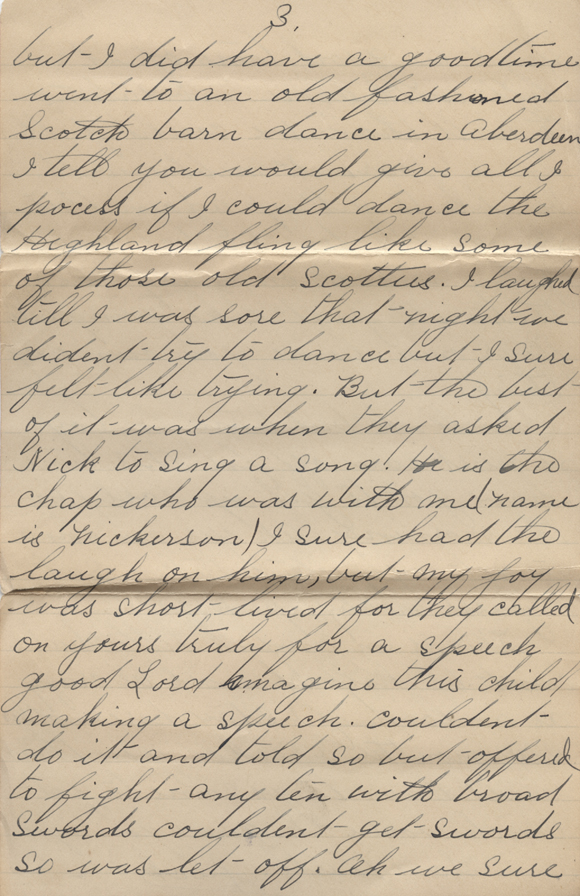 3.
but I did have a goodtime
went to an old fashoned
Scotch barn dance in Aberdeen
I tell you would give all I
pocess if I could dance the
Highland fling like some
of those old scotties. I laughed
till I was sore that night we
dident try to dance but I sure
felt like trying. But the best
of it was when they asked
Nick to sing a song. He is the
chap who was with me (name
is Nickerson) I sure had the
laugh on him, but my joy
was short lived for they called
on yours truly for a speech
good Lord imagine this child
making a speech. couldent
do it and told so but offered
to fight any ten with broad
swords couldent get swords
so was let off. Ah we sure